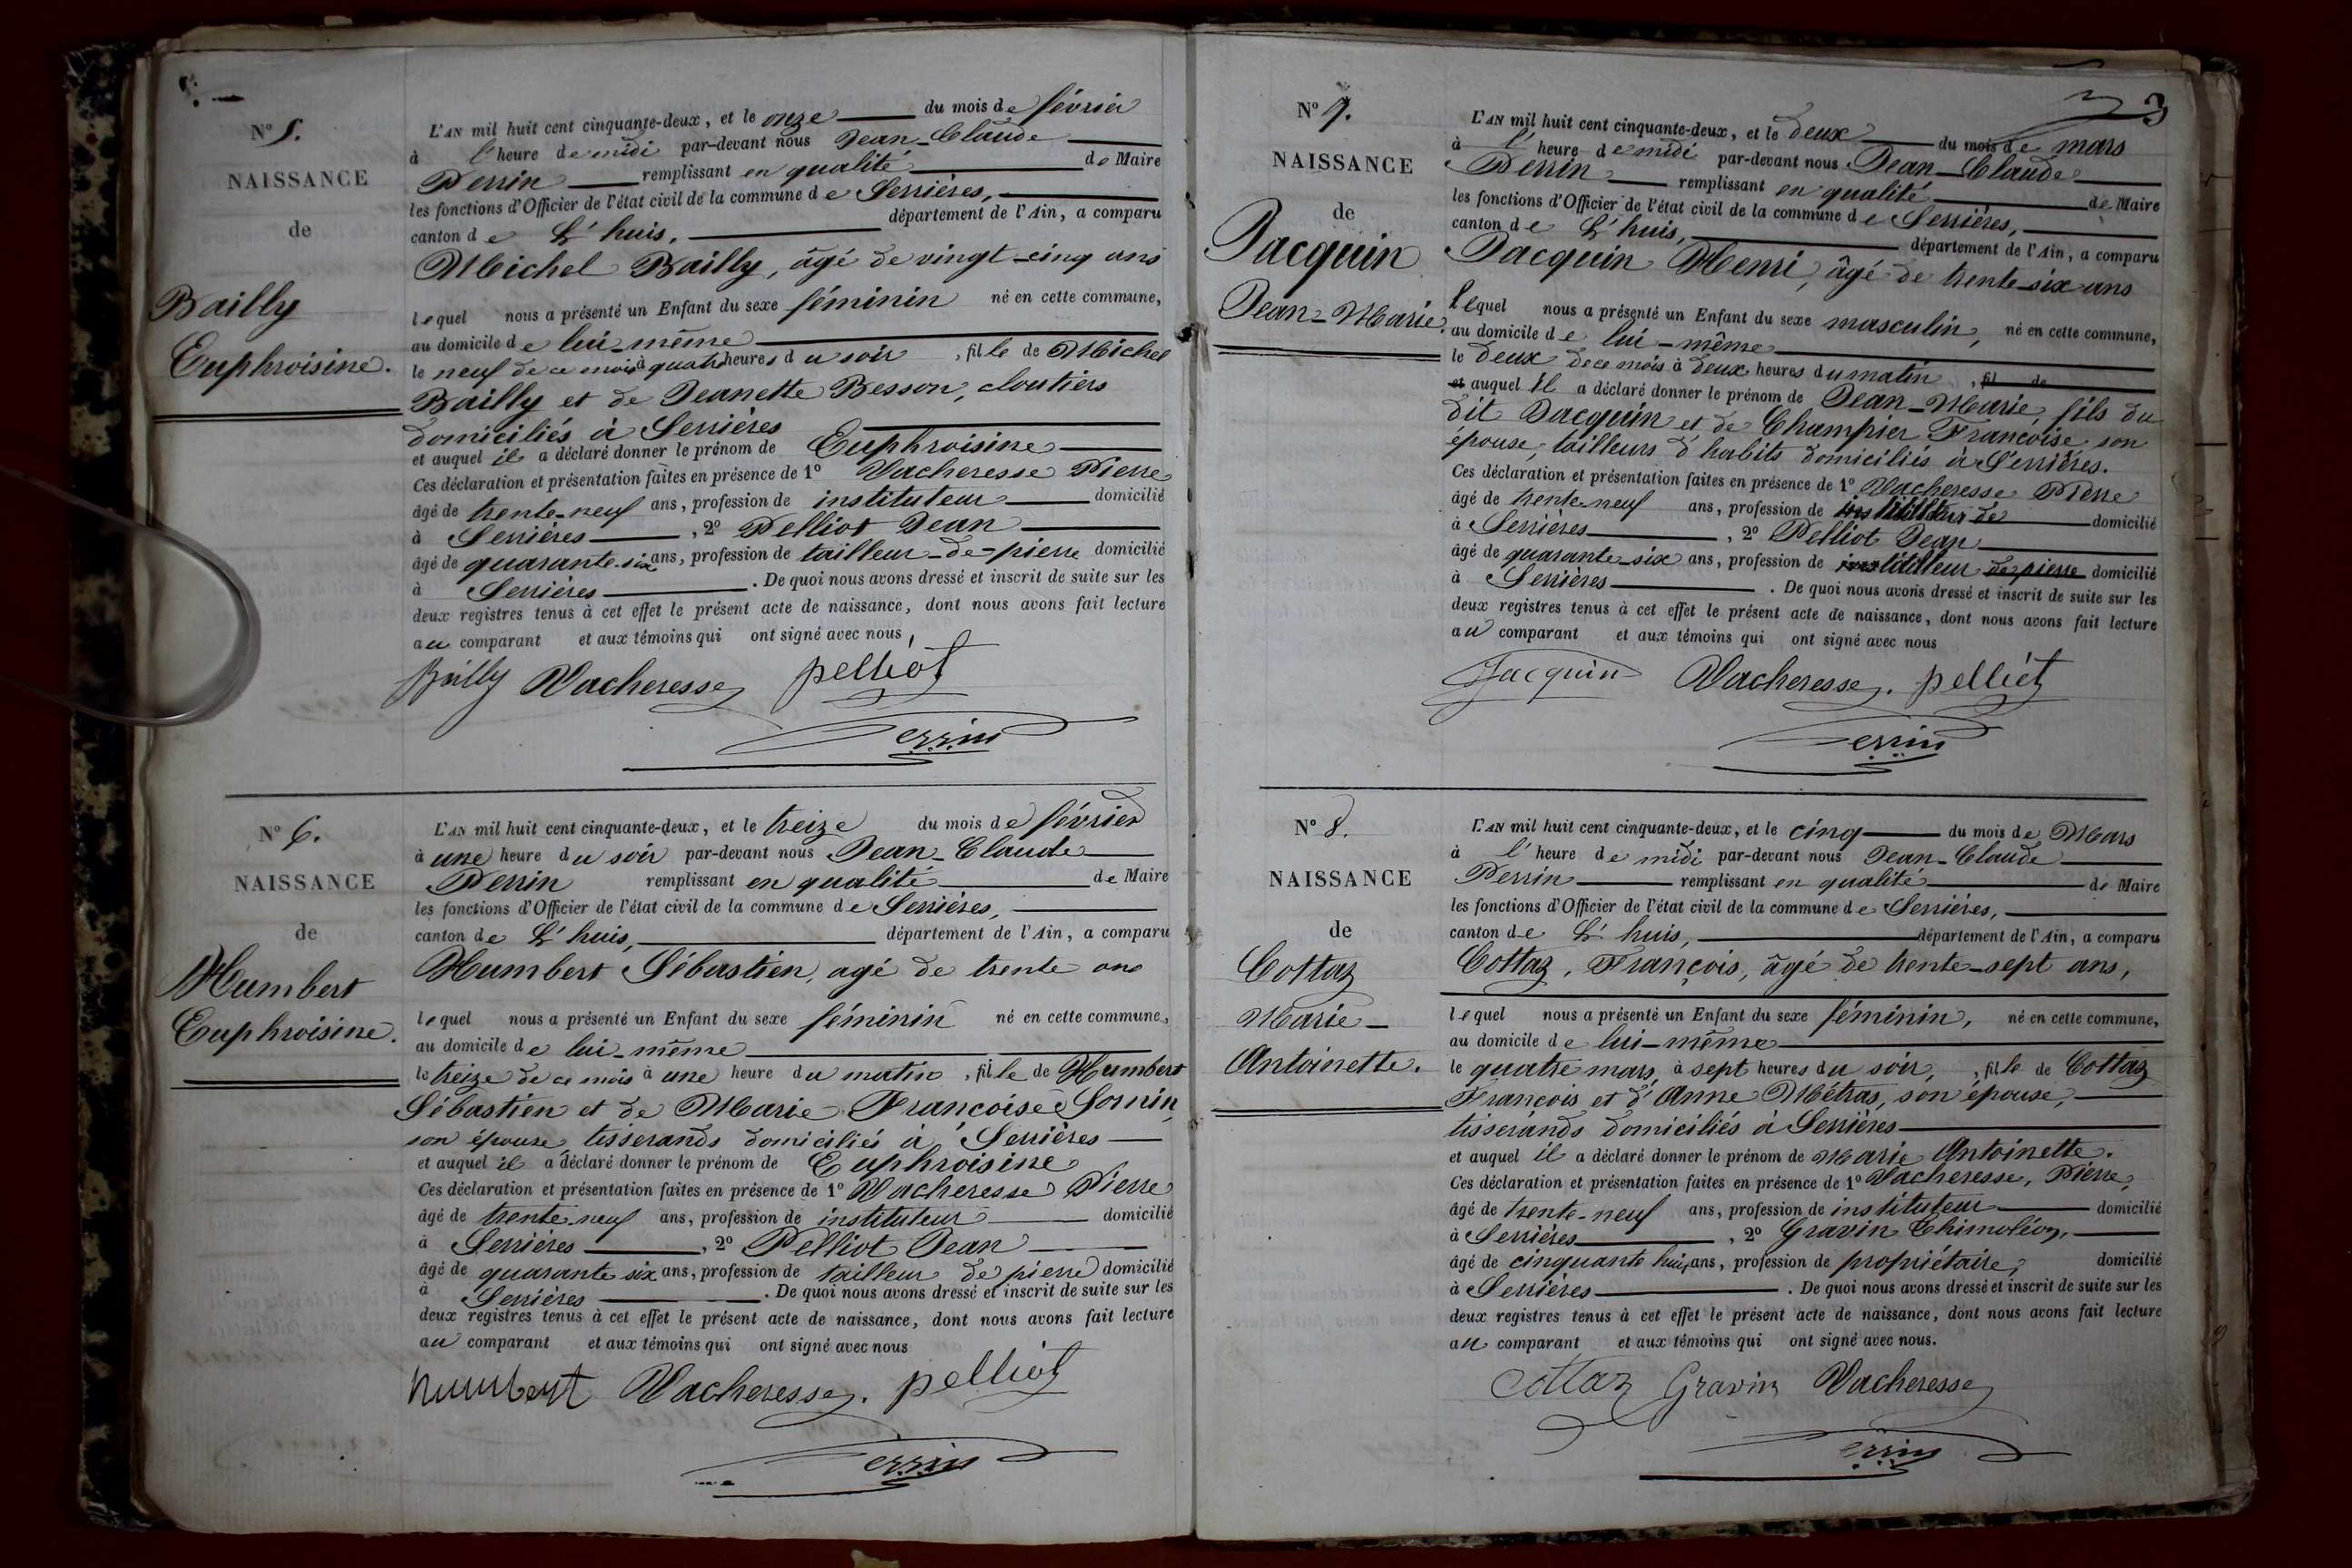 N° 5.
NAISSANCE
de
Bailly
Euphroisine.
L'AN mil huit cent cinquante-deux, et le onze du mois de février
à l'heure de midi par-devant nous Jean-Claude
Perrin remplissant en qualité de Maire
les fonctions d'Officier de l'état civil de la commune de Serrières,
canton de L'huis, département de l'Ain, a comparu
Michel Bailly, âgé de vingt-cinq ans
lequel nous a présenté un Enfant du sexe féminin né en cette commune,
au domicile de lui-même
le neuf de ce mois à quatre heures du soir, fille de Michel
Bailly et de Jeanette Besson, cloutiers
domiciliés à Serrières
et auquel il a déclaré donner le prénom de Euphroisine
Ces déclaration et présentation faites en présence de 1° Vacheresse Pierre
âgé de trente-neuf ans, profession de instituteur domicilié
à Serrières, 2° Pelliot Jean
âgé de quarante-six ans, profession de tailleur-de-pierre domicilié
à Serrières. De quoi nous avons dressé et inscrit de suite sur les
deux registres tenus à cet effet le présent acte de naissance, dont nous avons fait lecture
au comparant et aux témoins qui ont signé avec nous,
Bailly Vacheresse pelliot
Perrin
N° 6.
NAISSANCE
de
Humbert
Euphroisine.
L'AN mil huit cent cinquante-deux, et le treize du mois de février
à une heure du soir par-devant nous Jean-Claude
Perrin remplissant en qualité de Maire
les fonctions d'Officier de l'état civil de la commune de Serrières,
canton de L'huis, département de l'Ain, a comparu
Humbert Sébastien, agé de trente ans
lequel nous a présenté un Enfant du sexe féminin né en cette commune,
au domicile de lui-même
le treize de ce mois à une heure du matin, fille de Humbert
Sébastien et de Marie Françoise Sornin,
son épouse, tisserands domiciliés à Serrières
et auquel il a déclaré donner le prénom de Euphroisine
Ces déclaration et présentation faites en présence de 1° Vacheresse Pierre
âgé de trente-neuf ans, profession de instituteur domicilié
à Serrières, 2° Pelliot Jean
âgé de quarante six ans, profession de tailleur de pierre domicilié
à Serrières. De quoi nous avons dressé et inscrit de suite sur les
deux registres tenus à cet effet le présent acte de naissance, dont nous avons fait lecture
au comparant et aux témoins qui ont signé avec nous
humbert Vacheresse. pelliot
Perrin
3
N° 7.
NAISSANCE
de
Jacquin
Jean-Marie.
L'AN mil huit cent cinquante-deux, et le deux du mois de mars
à l'heure de midi par-devant nous Jean-Claude
Perrin remplissant en qualité de Maire
les fonctions d'Officier de l'état civil de la commune de Serrières,
canton de L'huis, département de l'Ain, a comparu
Jacquin Henri, âgé de trente-six ans
lequel nous a présenté un Enfant du sexe masculin, né en cette commune,
au domicile de lui-même
le deux de ce mois à deux heures du matin, fil de
et auquel il a déclaré donner le prénom de Jean-Marie, fils du
dit Jacquin et de Champier Françoise son
épouse, tailleurs d'habits domiciliés à Serrières.
Ces déclaration et présentation faites en présence de 1° Vacheresse Pierre
âgé de trente neuf ans, profession de domicilié
à Serrières, 2° Pelliot Jean
âgé de quarante-six ans, profession de de pierre domicilié
à Serrières. De quoi nous avons dressé et inscrit de suite sur les
deux registres tenus à cet effet le présent acte de naissance, dont nous avons fait lecture
au comparant et aux témoins qui ont signé avec nous
Jacquin Vacheresse. pelliot
Perrin
N° 8.
NAISSANCE
de
Cottaz
Marie-
Antoinette.
L'AN mil huit cent cinquante-deux, et le cinq du mois de Mars
à l'heure de midi par-devant nous Jean-Claude
Perrin remplissant en qualité de Maire
les fonctions d'Officier de l'état civil de la commune de Serrières,
canton de L'huis, département de l'Ain, a comparu
Cottaz, François, âgé de trente-sept ans,
lequel nous a présenté un Enfant du sexe féminin, né en cette commune,
au domicile de lui-même
le quatre mars, à sept heures du soir, fille de Cottaz
François et d'Anne Métras, son épouse,
tisserands domiciliés à Serrières
et auquel il a déclaré donner le prénom de Marie Antoinette.
Ces déclaration et présentation faites en présence de 1° Vacheresse, Pierre,
âgé de trente-neuf ans, profession de instituteur domicilié
à Serrières, 2° Gravin Thimoléon,
âgé de cinquante huit ans, profession de propriétaire, domicilié
à Serrières. De quoi nous avons dressé et inscrit de suite sur les
deux registres tenus à cet effet le présent acte de naissance, dont nous avons fait lecture
au comparant et aux témoins qui ont signé avec nous.
Cottaz Gravin Vacheresse
Perrin